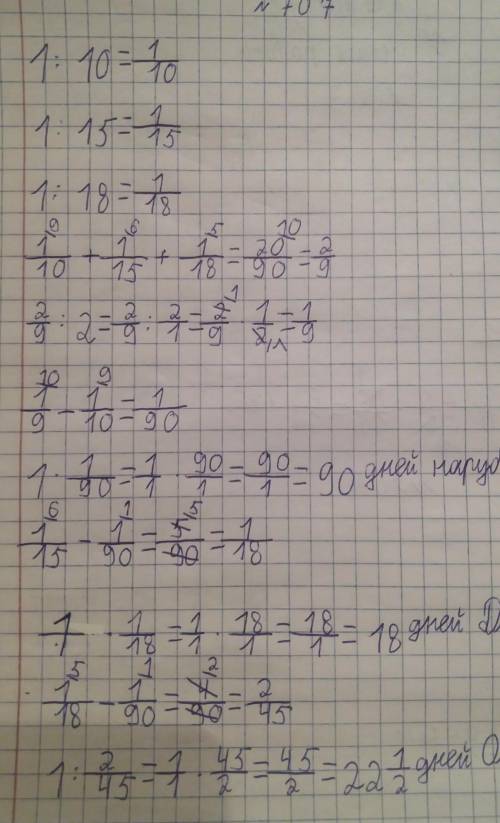 № 707
1 : 10 = 1/10
1 : 15 = 1/15
1 : 18 = 1/18
1/10 ⁹ + 1/15 ⁶ + 1/18 ⁵ = 20/90 ¹⁰ = 2/9
2/9 : 2 = 2/9 : 2/1 = 2/9 · 1/2 = 1/9
1/9 ¹⁰ - 1/10 ⁹ = 1/90
1 · 1/90 = 1/1 · 90/1 = 90/1 = 90 дней наруб
1/15 ⁶ - 1/90 ¹ = 5/90 = 1/18
1 · 1/18 = 1/1 · 18/1 = 18/1 = 18 дней Д
1/18 ⁵ - 1/90 ¹ = 4/90 = 2/45
1 : 2/45 = 1/1 · 45/2 = 45/2 = 22 1/2 дней О